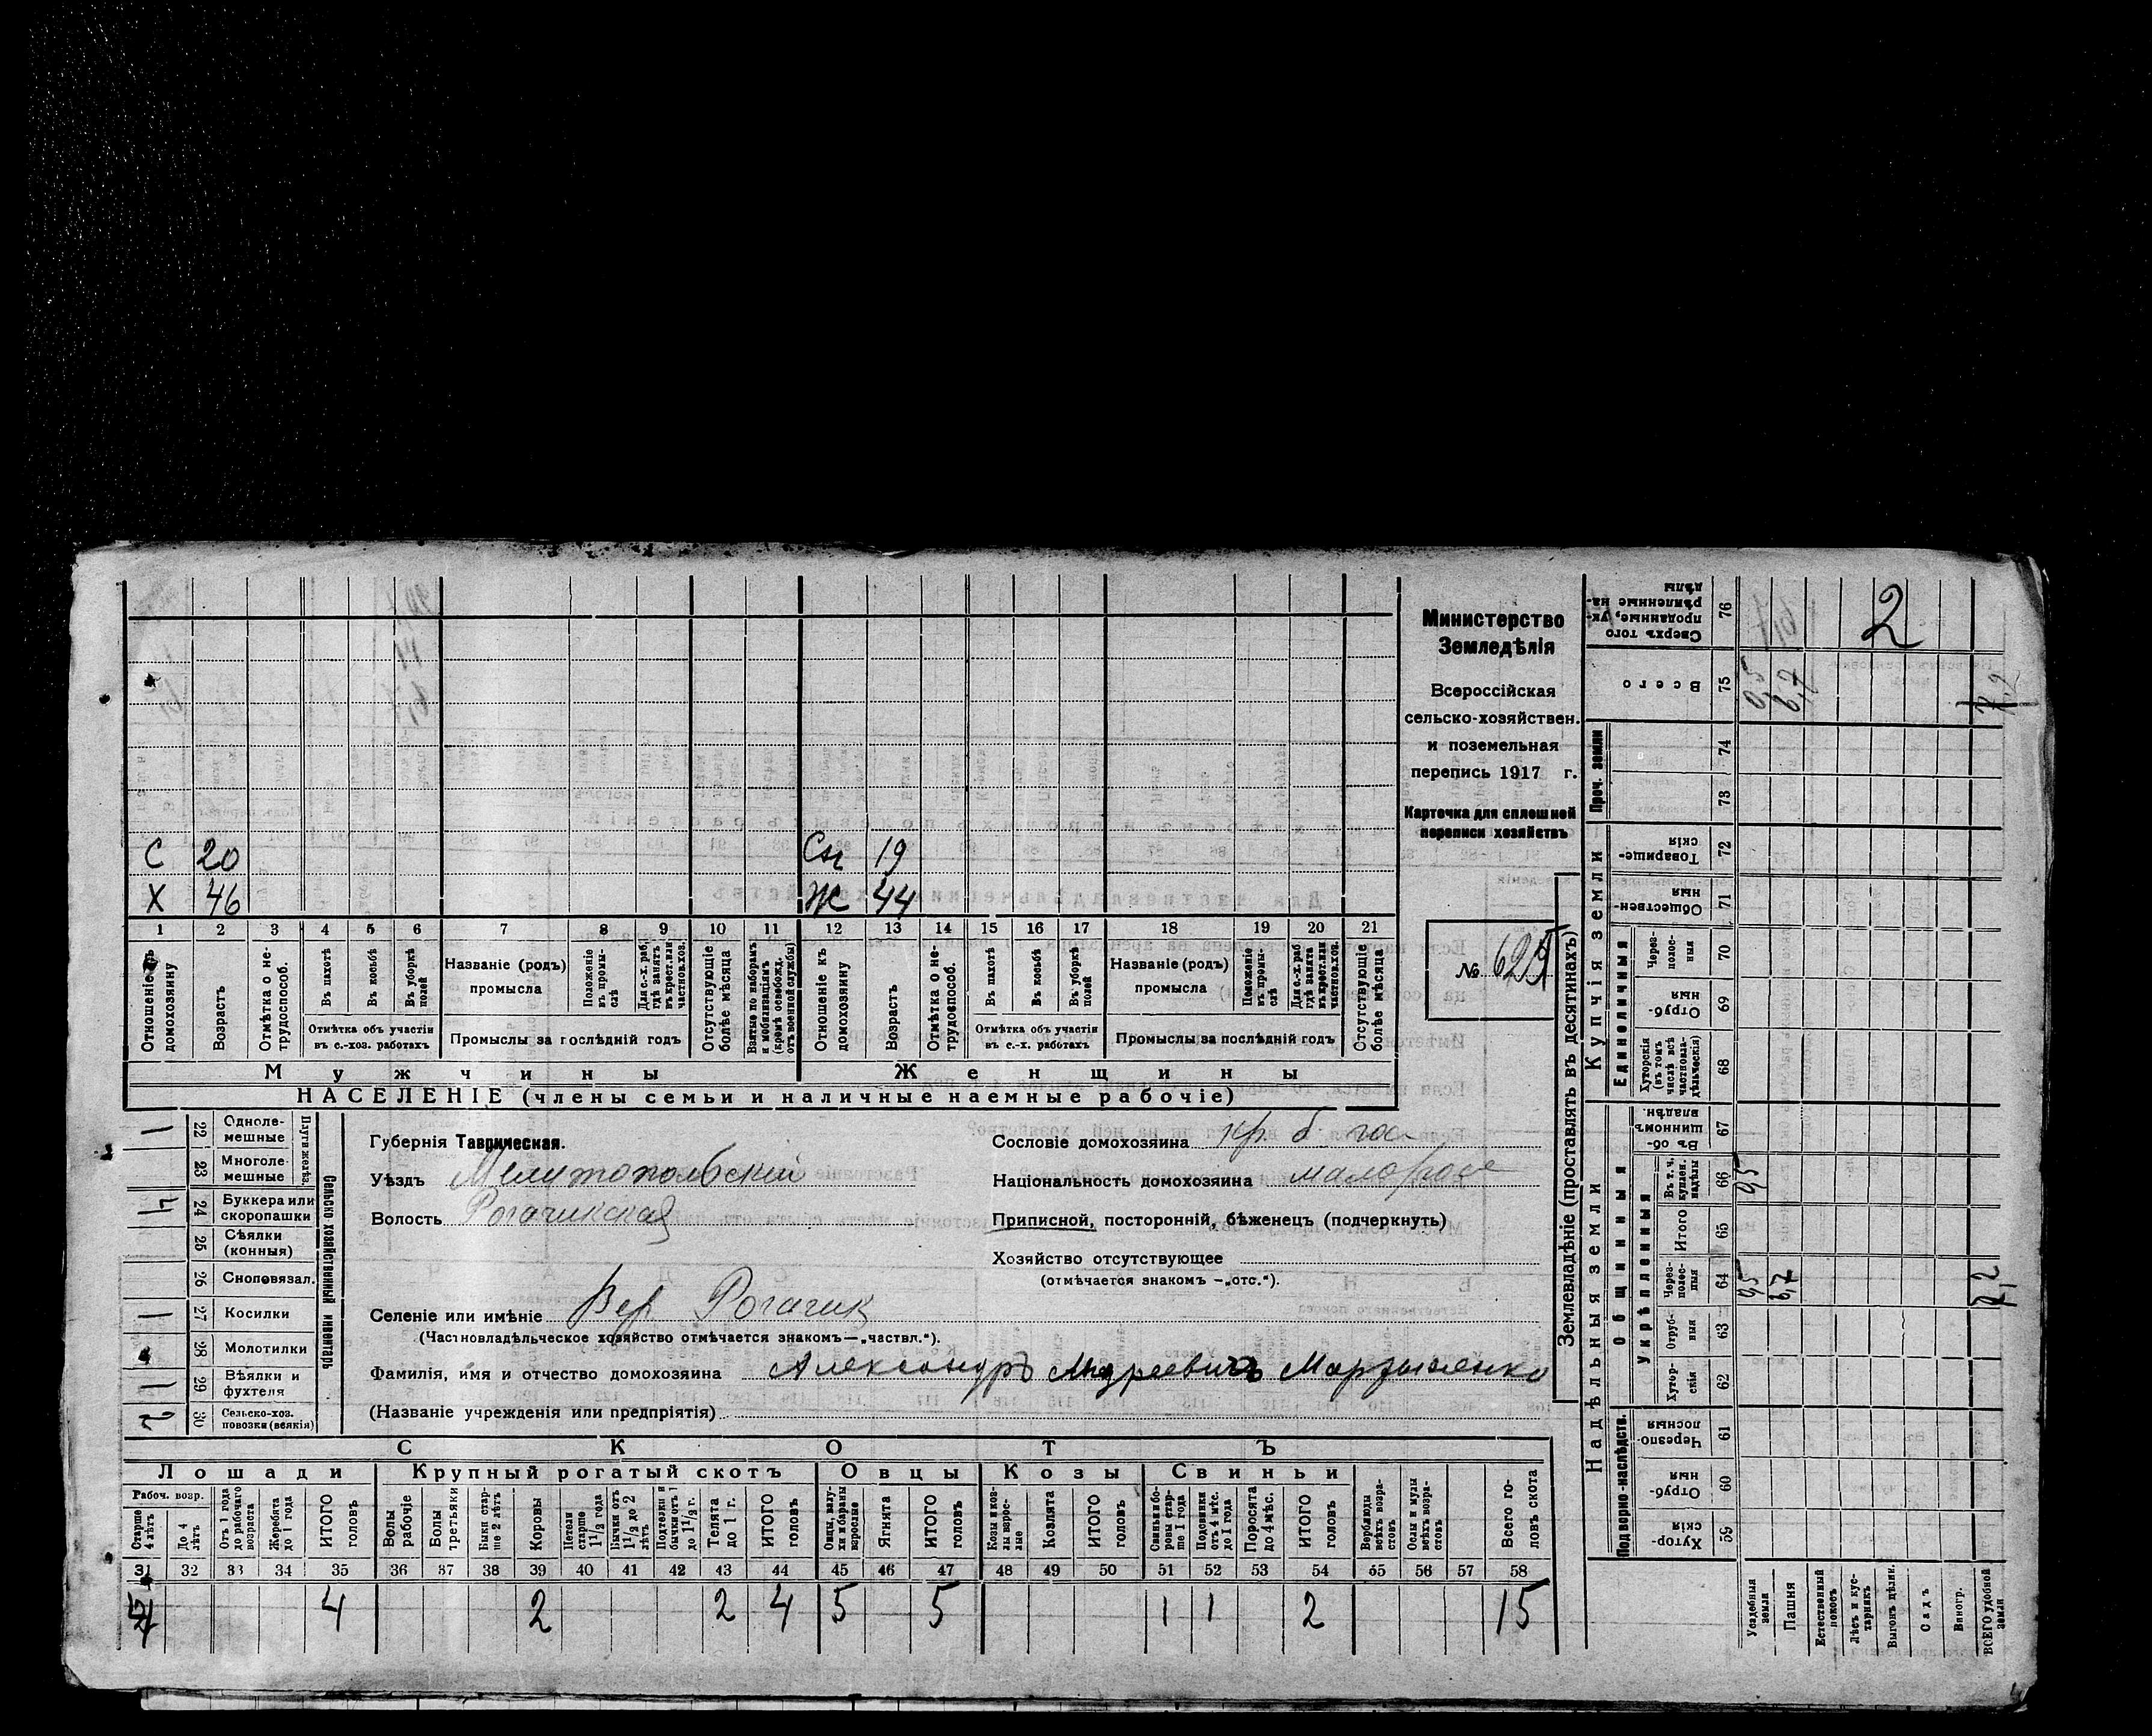 Министерство
Земледѣлія
Всероссійская
сельско-хозяйствен.
и поземельная
перепись 1917 г.
Карточка для сплошной
переписи хозяйствъ
№
С 20 Сн 19
Х 46 Ж 44
1 2 3 4 5 6 7 8 9 10 11 12 13 14 15 16 17 18 19 20 21
Отношеніе къ домохозяину
Возрастъ
Отмѣтка о не-трудоспособ.
Въ пахотѣ
Въ косьбѣ
Въ уборкѣ полей
Отмѣтка объ участіи въ с.-хоз. работахъ
Названіе (родъ) промысла
Положеніе въ промы-слѣ
Для с.-х. раб. гдѣ занятъ въ крест. или частнов. хоз.
Промыслы за послѣдній годъ
Отсутствующіе болѣе мѣсяца
Взятые по наборамъ и мобилизаціямъ (кромѣ освобожд. отъ военной службы)
Отношеніе къ домохозяину
Возрастъ
Отмѣтка о не-трудоспособ.
Въ пахотѣ
Въ косьбѣ
Въ уборкѣ полей
Отмѣтка объ участіи въ с.-х. работахъ
Названіе (родъ) промысла
Положеніе въ промы-слѣ
Для с.-х. раб. гдѣ занята въ крест. или частнов. хоз.
Промыслы за послѣдній годъ
Отсутствующіе болѣе мѣсяца
Мужчины Женщины
НАСЕЛЕНІЕ (члены семьи и наличные наемные рабочіе)
Сельско-хозяйственный инвентарь
Плуги желѣз.
22 Одноле-мешные 1
23 Многоле-мешные
24 Буккера или скоропашки
25 Сѣялки (конныя)
26 Сноповязал.
27 Косилки 1
28 Молотилки
29 Вѣялки и фухтеля 1
30 Сельско-хоз. повозки (всякія) 2
Губернія Таврическая.
Уѣздъ Мелитопольскій
Волость Рогачикская
Селеніе или имѣніе Вер Рогачик
(Частновладѣльческое хозяйство отмѣчается знакомъ—„частвл.“).
Фамилія, имя и отчество домохозяина Александръ Андреевичъ
(Названіе учрежденія или предпріятія)
Сословіе домохозяина кр. б гос
Національность домохозяина малорос
Приписной, посторонній, бѣженецъ (подчеркнуть)
Хозяйство отсутствующее
(отмѣчается знакомъ —„отс.“).
СКОТЪ
Лошади Крупный рогатый скотъ Овцы Козы Свиньи
Рабоч. возр.
Старше 4 лѣтъ
До 4 лѣтъ
Отъ 1 года до рабочаго возраста
Жеребята до 1 года
ИТОГО головъ
Волы рабочіе
Волы третьяки
Быки стар-ше 2 лѣтъ
Коровы
Нетели старше 1 1/2 года
Бычки отъ 1 1/2 до 2 лѣтъ
Подтелки и бычки отъ 1 до 1 1/2 г.
Телята до 1 г.
ИТОГО головъ
Овцы, валу-хи и бараны взрослые
Ягнята
ИТОГО головъ
Козы и коз-лы взрос-лые
Козлята
ИТОГО головъ
Свиньи и бо-ровы стар-ше 1 года
Подсвинки отъ 4 мѣс. до 1 года
Поросята до 4 мѣс.
ИТОГО головъ
Верблюды всѣхъ возра-стовъ
Ослы и мулы всѣхъ возра-стовъ
Всего го-ловъ скота
31 32 33 34 35 36 37 38 39 40 41 42 43 44 45 46 47 48 49 50 51 52 53 54 55 56 57 58
4 2 2 4 5 5 1 1 2 15
Землевладѣніе (проставлять въ десятинахъ)
Надѣльныя земли Купчія земли Проч. земли
Подворно-наслѣдств.
Общинныя
Укрѣпленныя
Единоличныя
Хутор-скія 59
Отруб-ныя 60
Черезпо-лосныя 61
Хутор-скія 62
Отруб-ныя 63
Через-полос-ныя 64
Итого 65
Въ т. ч. куплен. надѣлы 66
Въ об-щинномъ владѣн. 67
Хуторскія (въ томъ числѣ всѣ частновла-дѣльческія) 68
Отруб-ныя 69
Через-полос-ныя 70
Обществен-ныя 71
Товарище-скія 72
73
74
Всего 75
Сверхъ того проданные, ук-рѣпленные на-дѣлы 76
2
Усадебныя земли
Пашня
Естественный покосъ
Лѣсъ и кус-тарникъ
Выгонъ цѣлин.
Садъ
Виногр.
ВСЕГО удобной земли